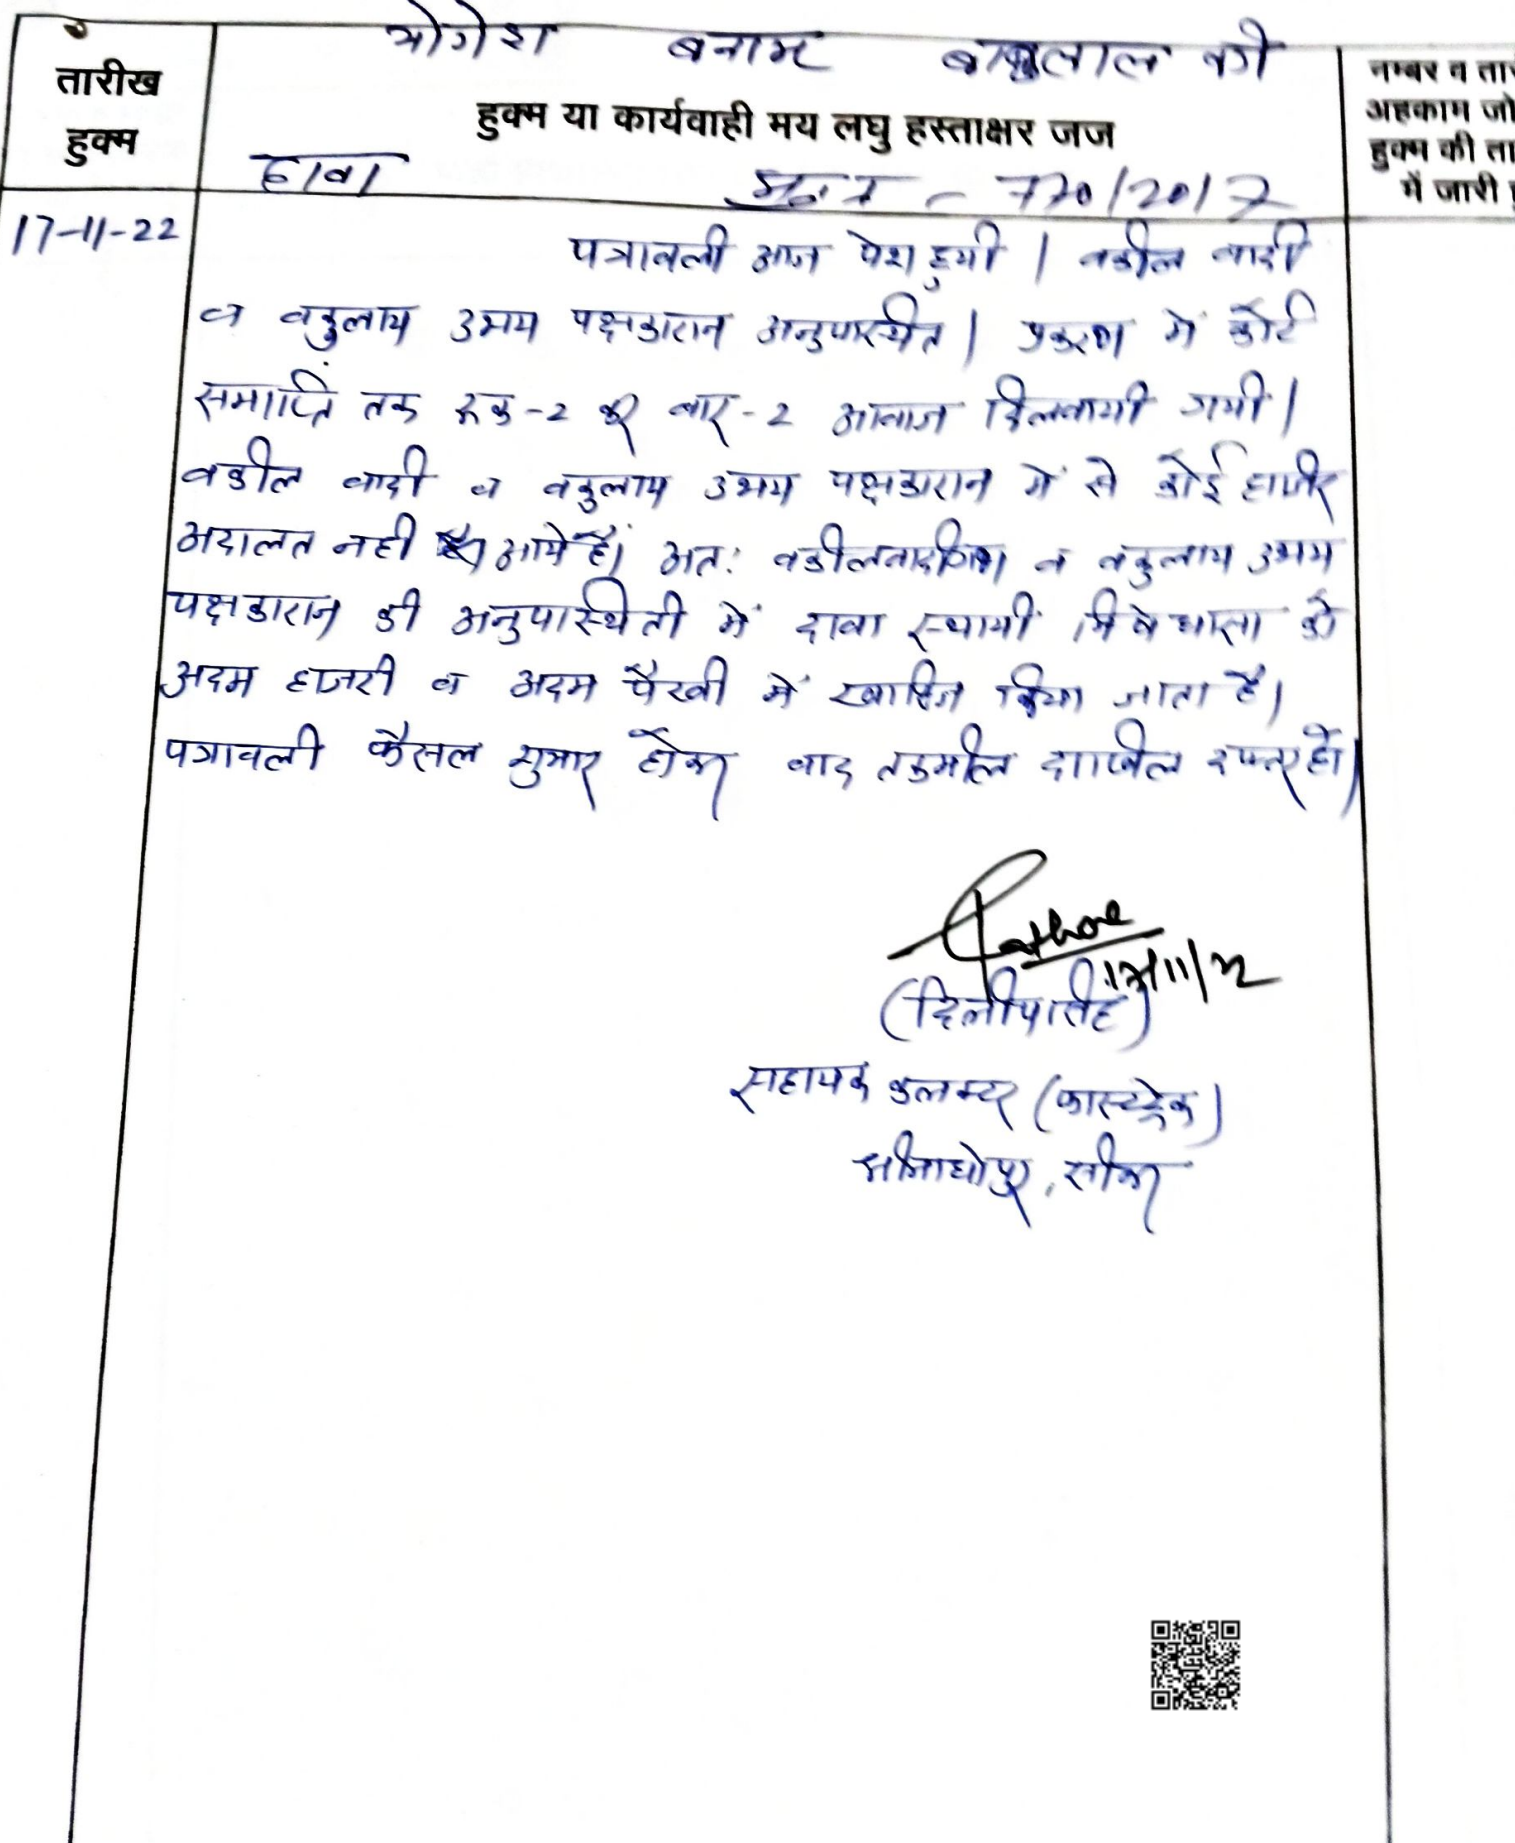 योगेश बनाम बाबुलाल को
तारीख
हुक्म
हुक्म या कार्यवाही मय लघु हस्ताक्षर जज
नम्बर व तार
अहकाम जो
हुक्म की ता
में जारी हु
दावा मु.न - 770/2017
17-11-22
पत्रावली आज पेश हुयी। वकील वादी
व वकुलाय उभय पक्षकारान अनुपस्थित। प्रकरण में कोर्ट
समाप्ति तक रूक-2 कर बार-2 आवाज दिलवायी गयी।
वकील वादी व वकुलाय उभय पक्षकारान में से कोई हाजीर
अदालत नही आये है। अतः वकील व वकुलाय उभय
पक्षकारान की अनुपास्थिती में दावा स्थायी निषेधाज्ञा को
अदम हाजरी व अदम पैरवी में खारिज किया जाता है।
पत्रावली फैसल सुमार होकर बाद तकमील दाखिल दफ्तर हो।
Rathore
17/11/22
(दिलीपसिंह)
सहायक कलक्टर (फास्टट्रेक)
श्रीमाधोपुर, सीकर